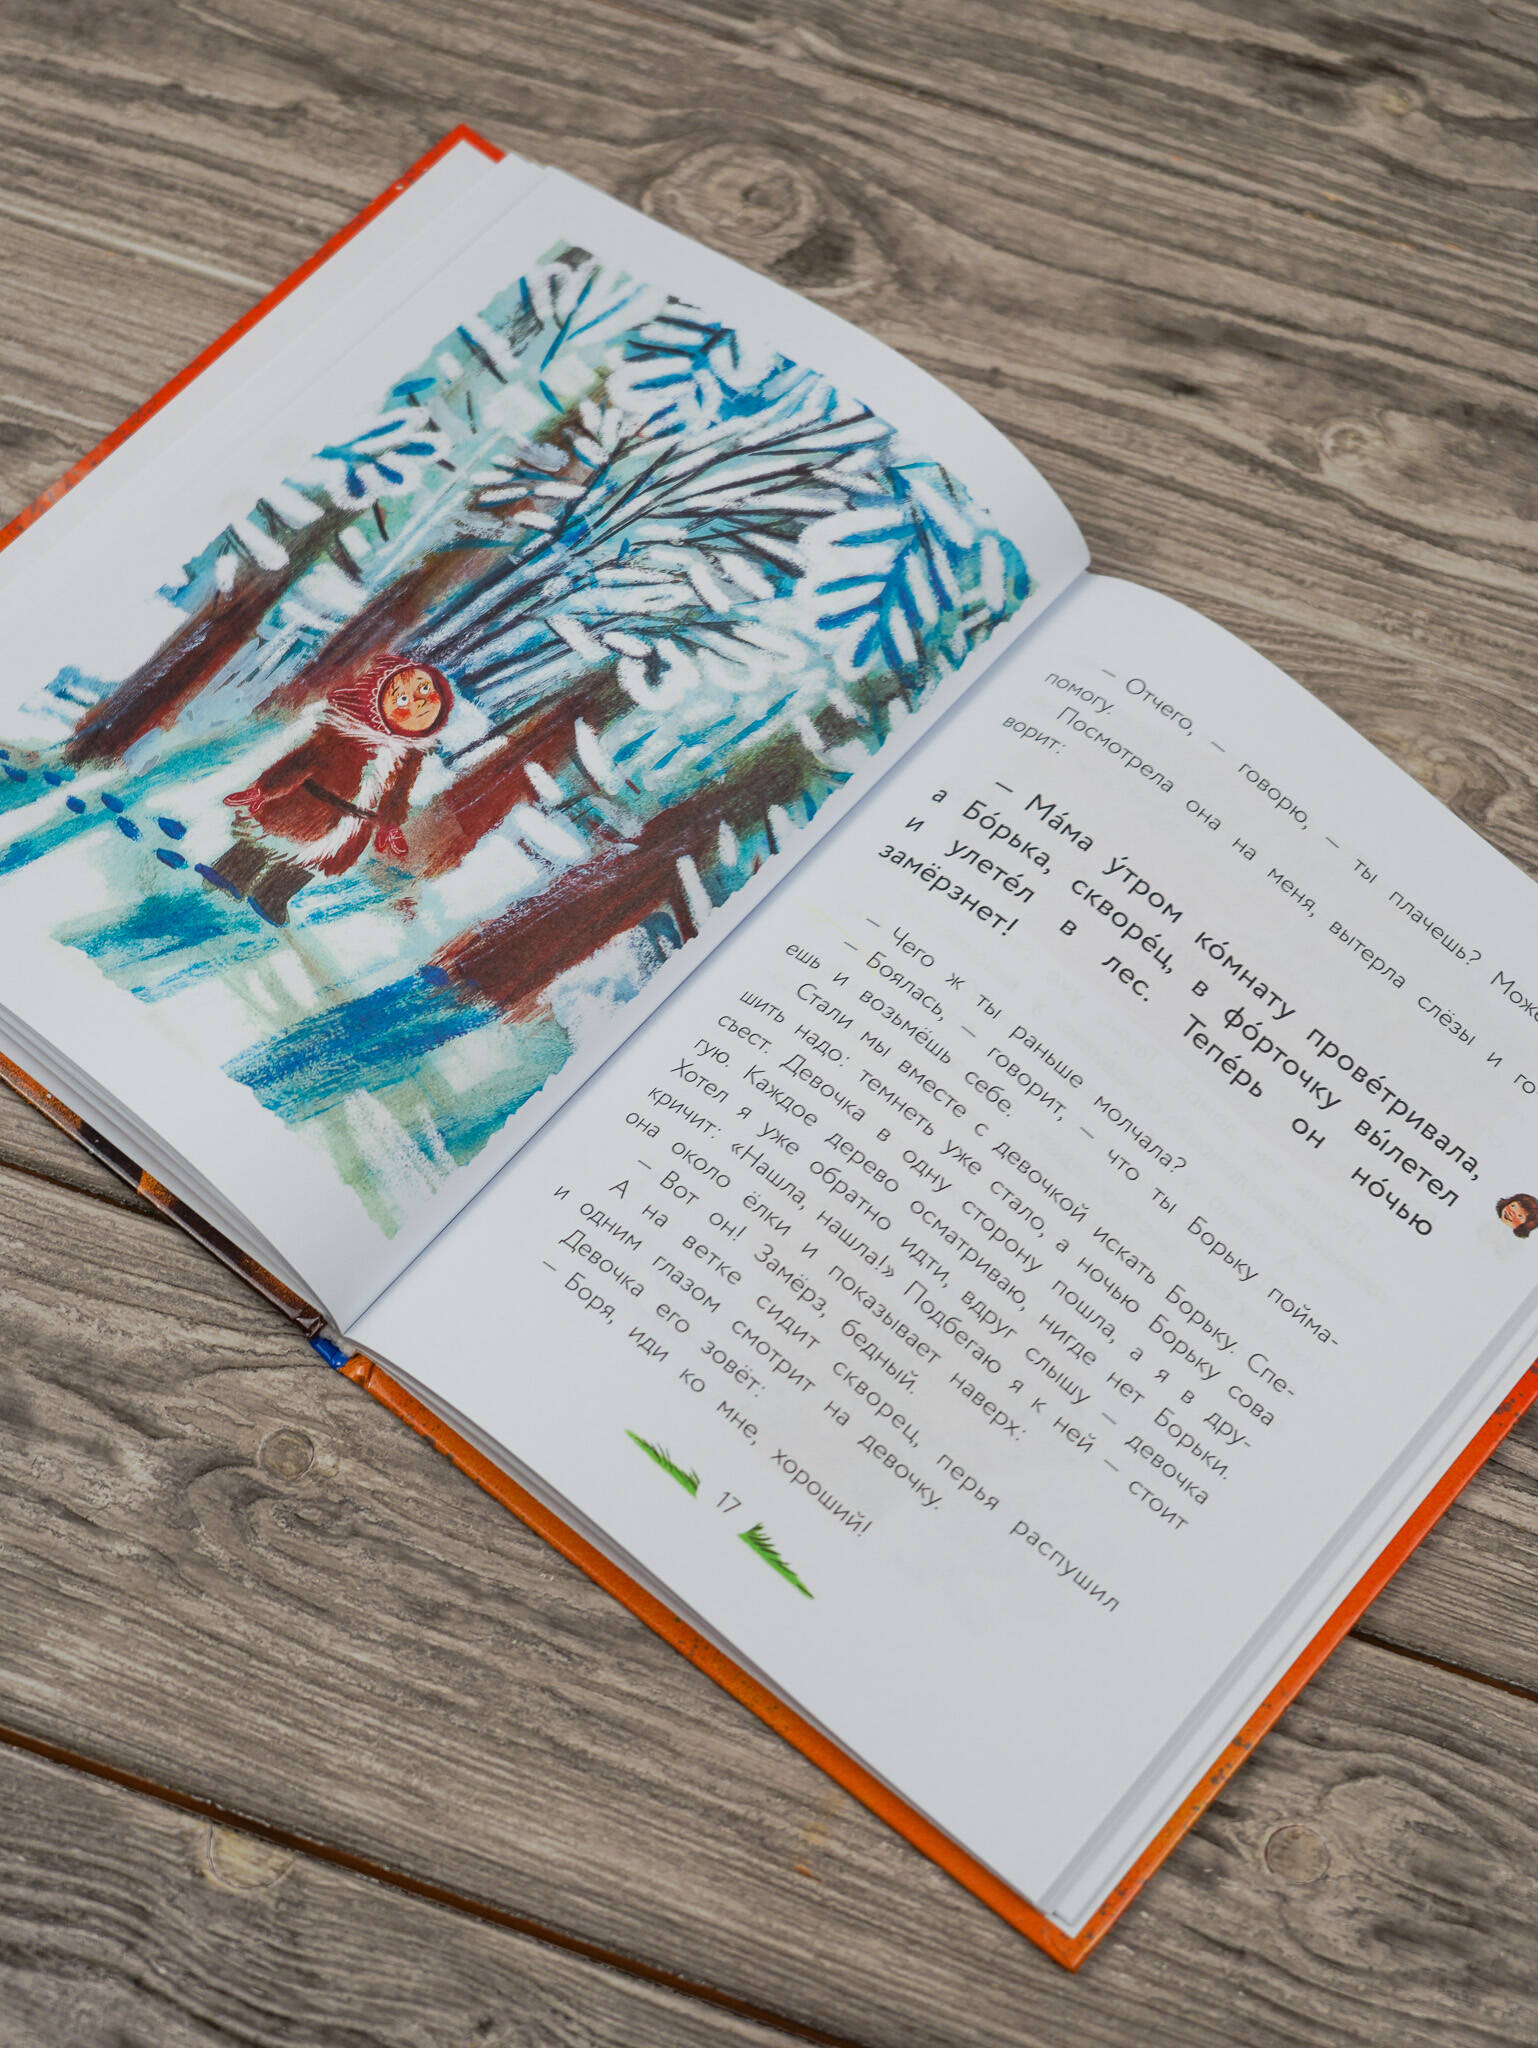 — Отчего, — говорю, — ты плачешь? Може
помогу.
Посмотрела она на меня, вытерла слёзы и го
ворит:
— Ма́ма у́тром ко́мнату прове́тривала,
а Бо́рька, скворе́ц, в фо́рточку вы́летел
и улете́л в лес. Тепе́рь он но́чью
замёрзнет!
— Чего ж ты раньше молчала?
— Боялась, — говорит, — что ты Борьку пойма-
ешь и возьмёшь себе.
Стали мы вместе с девочкой искать Борьку. Спе-
шить надо: темнеть уже стало, а ночью Борьку сова
съест. Девочка в одну сторону пошла, а я в дру-
гую. Каждое дерево осматриваю, нигде нет Борьки.
Хотел я уже обратно идти, вдруг слышу — девочка
кричит: «Нашла, нашла!» Подбегаю я к ней — стоит
она около ёлки и показывает наверх:
— Вот он! Замёрз, бедный.
А на ветке сидит скворец, перья распушил
и одним глазом смотрит на девочку.
Девочка его зовёт:
— Боря, иди ко мне, хороший!
17